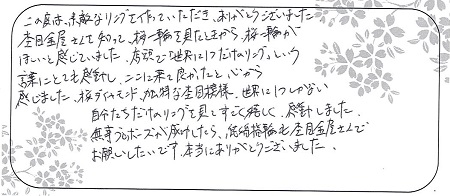 この度は、素敵なリングを作っていただき、ありがとうございました
杢目金屋さんを知って、桜一輪を見たときから、桜一輪が
ほしいと感じていました。店頭で世界に1つだけのリングという
言葉にとても感動し、ここに来て良かったと心から
感じました。桜ダイヤモンド、独特な杢目模様、世界に1つしかない
自分たちだけのリングを見てすごく嬉しく、感動しました。
無事プロポーズが成功したら、結婚指輪も杢目金屋さんで
お願いしたいです。本当にありがとうございました。